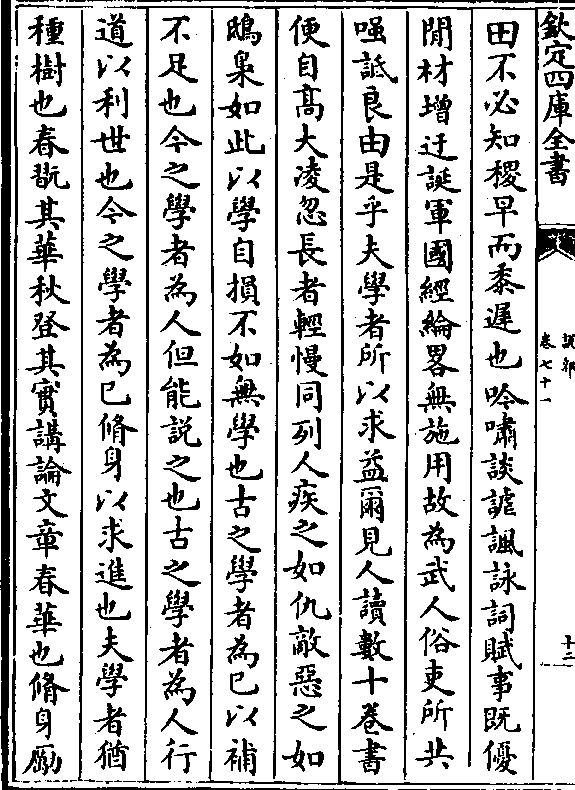 欽定四庫全書
說郛
卷七十一
十二
田不必知稷早而黍遲也吟嘯談謔諷詠詞賦事既優
閒材增迂誕軍國經綸畧無施用故為武人俗吏所共
嗤詆良由是乎夫學者所以求益爾見人讀數十卷書
便自髙大凌忽長者輕慢同列人疾之如仇敵惡之如
鴟梟如此以學自損不如無學也古之學者為已以補
不足也今之學者為人但能説之也古之學者為人行
道以利世也今之學者為已脩身以求進也夫學者猶
種樹也春翫其華秋登其實講論文章春華也脩身勵